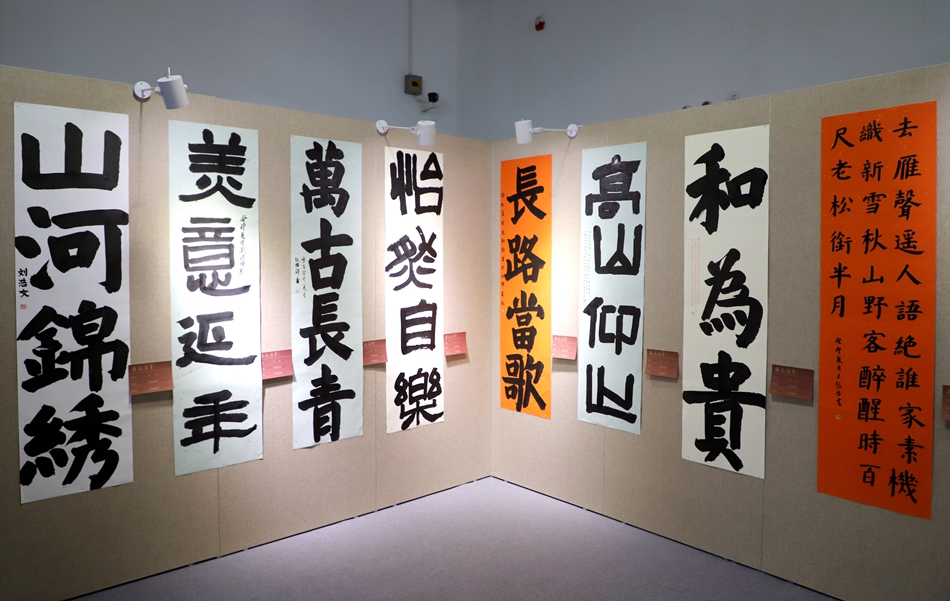 山河錦綉
刘浩文
美意延年
萬古長青
怡然自樂
長路當歌
高山仰止
和為貴
去雁聲遥人語絕誰家素機
織新雪秋山野客醉醒時百
尺老松銜半月